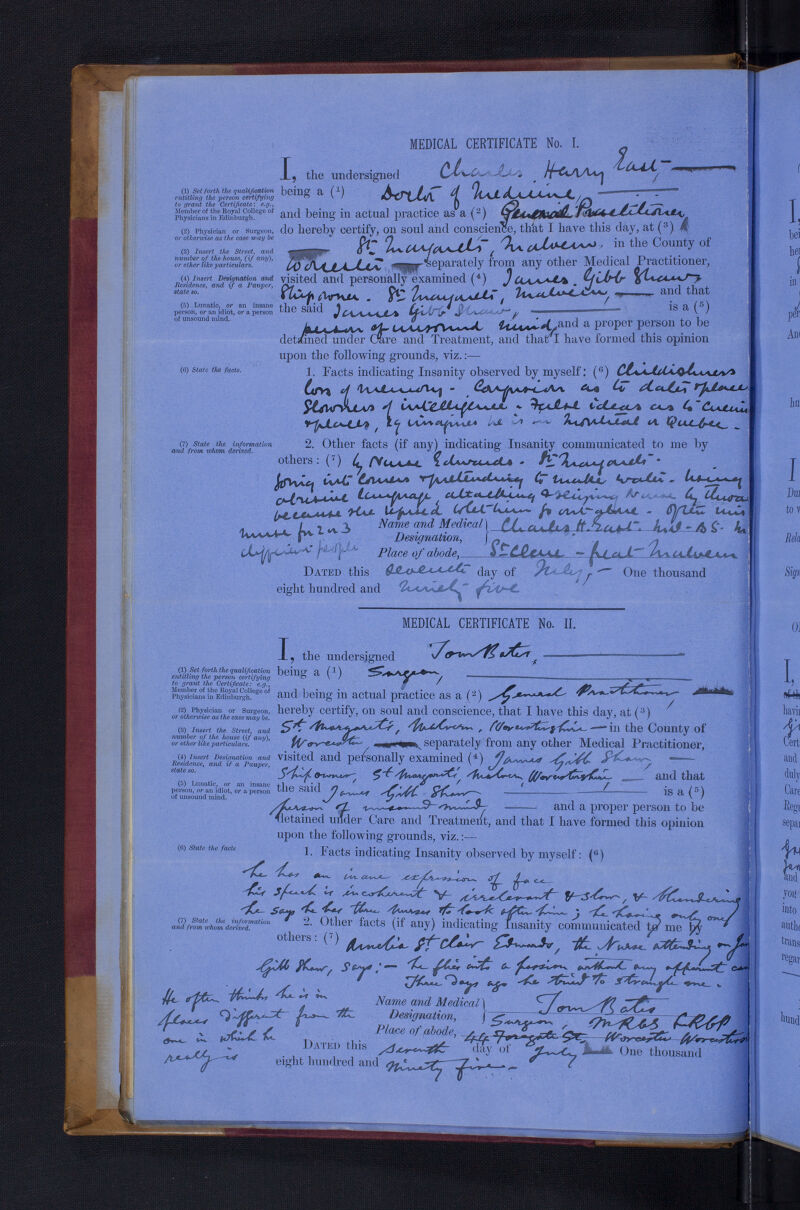 MEDICAL CERTIFICATE No. I.
I, the undersigned Charles Harry East,
(1) Set forth the qualification entitling the person certifying to grant the Certificate; e.g., Member of the Royal College of Physicians in Edinburgh.
being a (1) Doctor of Medicine
and being in actual practice as a (2) General Practitioner
(2) Physician or Surgeon, or otherwise as the case may be
do hereby certify, on soul and conscience, that I have this day, at (3)
(3) Insert the Street, and number of the house, (if any), or other like particulars.
St. Margarets, Malvern, in the County of
Worcester separately from any other Medical Practitioner,
(4) Insert Designation and Residence, and if a Pauper, state so.
visited and personally examined (4) James Gibb Shaw
Ship owner. St Margarets, Malvern, and that
(5) Lunatic, or an insane person, or an idiot, or a person of unsound mind.
the said James Gibb Shaw, is a (5)
person of unsound mind, and a proper person to be
detained under Care and Treatment, and that I have formed this opinion
upon the following grounds, viz.:—
(6) State the facts.
1. Facts indicating Insanity observed by myself: (6) Childishness
loss of memory - Confusion as to dates & places
Slowness of intelligence - False ideas as to
& places, eg imagines he is in Montreal or Quebec -
(7) State the information and from whom derived.
2. Other facts (if any) indicating Insanity communicated to me by
others: (7) by Nurse Edwards - St Margarets -
going into corners & pretending to make water - using
abusive language, attacking & seizing Nurse by throat
because she refused to let him go out alone - Often
nurse for 2 or 3
different people
Name and Medical Designation, Charles H. East. M.D - B S.
Place of abode, St Clare - Great Malvern
DATED this seventh day of July, One thousand
eight hundred and ninety five
MEDICAL CERTIFICATE No. II.
I, the undersigned Tom Bates,
(1) Set forth the qualification entitling the person certifying to grant the Certificate: e.g., Member of the Royal College of Physicians in Edinburgh
being a (1) Surgeon,
and being in actual practice as a (2) General Practitioner
(2) Physician or Surgeon, or otherwise as the case may be.
hereby certify, on soul and conscience, that I have this day, at (3)
(3) Insert the Street, and number of the house (if any), or other like particulars.
St. Margarets, Malvern, Worcestershire — in the County of
Worcester, separately from any other Medical Practitioner,
(4) Insert Designation and Residence, and if a Pauper, state so.
visited and personally examined (4) James Gibb Shaw,
Ship owner, St Margarets, Malvern, Worcestershire and that
(5) Lunatic, or an insane person, or an idiot, or a person of unsound mind.
the said James Gibb Shaw is a (5)
person of unsound mind, and a proper person to be
detained under Care and Treatment, and that I have formed this opinion
upon the following grounds, viz.:—
(6) State the facts
1. Facts indicating Insanity observed by myself: (6)
he has an inane expression of face
his speech is incoherent & irrelevant & slow, & blundering
he says he has three nurses to look after him; he having only one
(7) State the information and from whom derived.
2. Other facts (if any) indicating Insanity communicated to me by
others: (7) Amelia St Clair Edwards, the Nurse attending on
Gibb Shaw, says:— he flies into a passion without any apparent
Three days ago he tried to strangle me.
He often thinks he is in
places different from the
one in which he
really is
Name and Medical Designation, Tom Bates
Surgeon, MRCS LRCP
Place of abode, 44 Foregate St, Worcester
DATED this Seventh day of July One thousand
eight hundred and ninety five